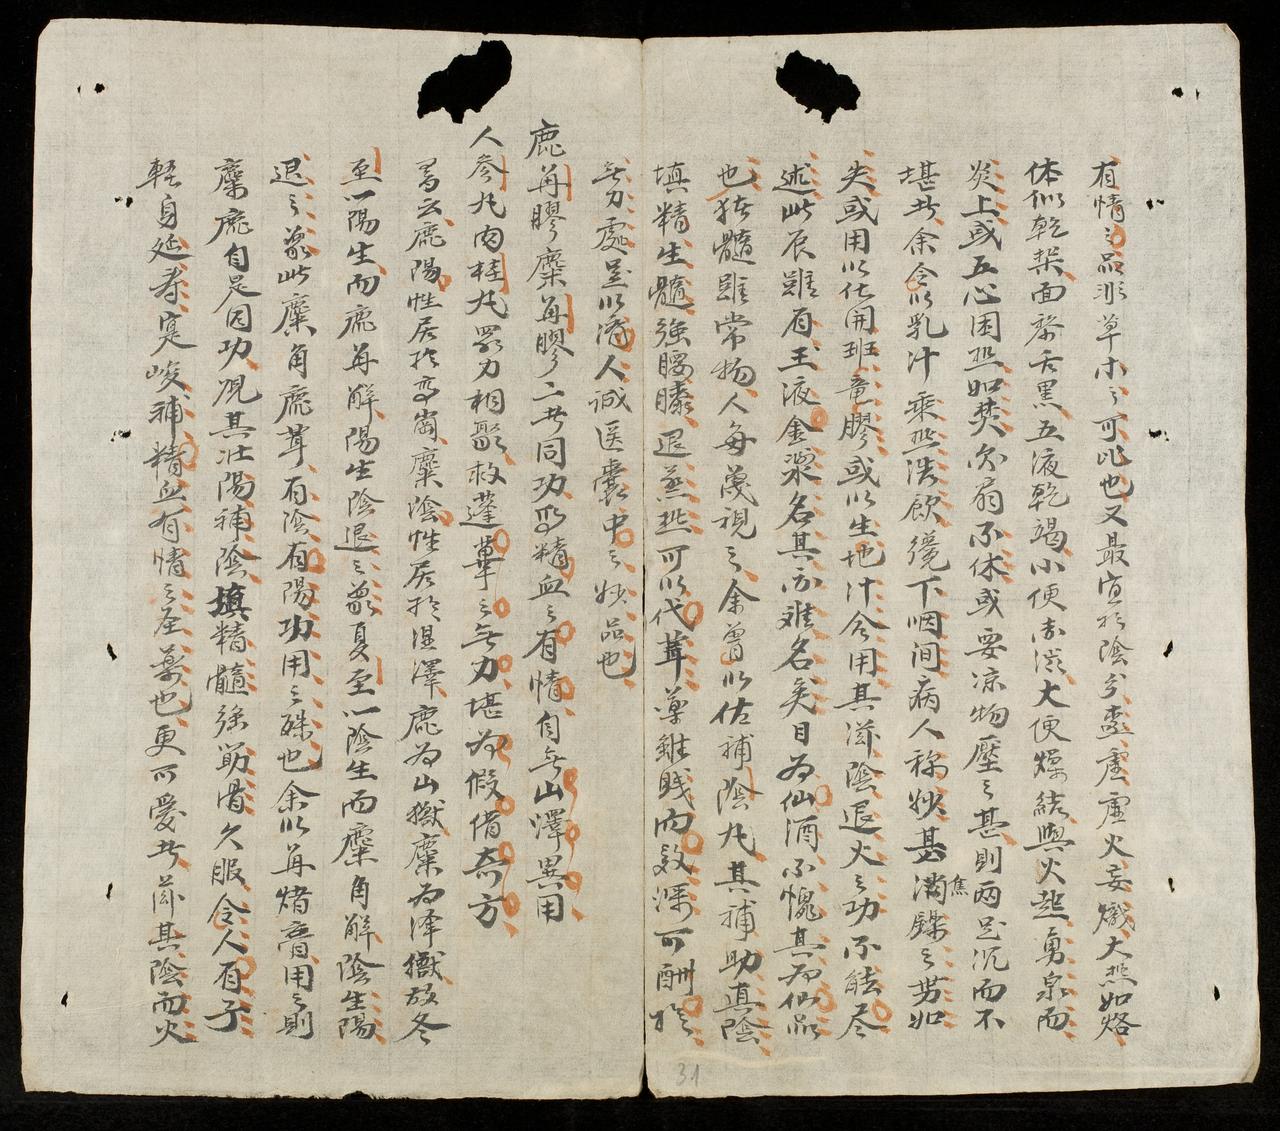 有情之品非草木之可比也又最宜於陰分虛虛火妄熾大熱如烙
体似乾柴面黎舌黑五液乾竭小便赤澁大便燥結與火起勇泉而
炎上或五心困热如焚尔扇不休或要凉物壓之甚則兩足沉而不
堪者余令以乳汁乘热浩飲纔下咽间病人称妙甚消鑠之势如
焦
失或用以化開班竜膠或以生地汁合用其滋陰退火之功不能尽
述此辰雖有玉液金漿名其亦难名矣目为仙酒不愧其为仙品
也猪髓雖常物人每蔑視之余曾以佐補陰丸其補助真陰
填精生髓強腰膝退蒸热可以代茸雖賎而效深可酬於
無力處足以濟人誠医囊中之妙品也
鹿茸膠麋茸膠二者同功乃精血之有情自無山澤異用
人參丸肉桂丸眾力相聚救蓬蓽之無力堪为假借奇方
畧云鹿陽性居於高崗麋陰性居於湿澤鹿为山獣麋为泽獣故冬
至一陽生而鹿茸解陽生陰退之象夏至一陰生而麋角解陰生陽
退之象此麋角鹿茸有陰有陽功用之殊也余以茸熬膏用之則
麋鹿自是因功况其壮陽補陰填精髓強筋骨久服令人有子
輕身延寿寔峻補精血有情之圣藥也更可愛者滋其陰而火
31